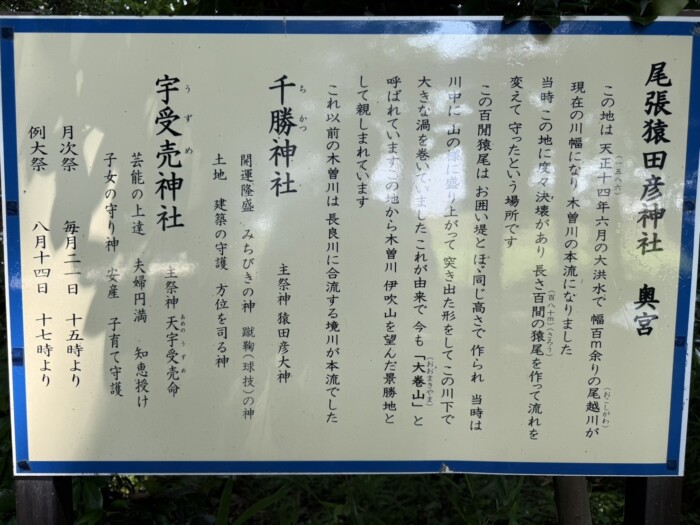 尾張猿田彦神社 奥宮
この地は 天正十四年(一五八六)六月の大洪水で 幅百m余りの尾越川(おこしがわ)が
現在の川幅になり 木曽川の本流になりました
当時 この地に度々決壊があり 長さ百間(百八十m)の猿尾(さろう)を作って流れを
変えて 守ったという場所です
この百間猿尾は お囲い堤とほゞ同じ高さで 作られ 当時は
川中に 山の様に盛り上がって 突き出た形をして この川下で
大きな渦を巻いていました これが由来で 今も「大巻山(おおまきやま)」と
呼ばれています この地から木曽川 伊吹山を望んだ景勝地と
して親しまれています
これ以前の木曽川は 長良川に合流する境川が本流でした
千勝神社(ちかつ) 主祭神 猿田彦大神
開運隆盛 みちびきの神 蹴鞠(球技)の神
土地 建築の守護 方位を司る神
宇受売神社(うずめ) 主祭神 天宇受売命(あめのうずめ)
芸能の上達 夫婦円満 知恵授け
子女の守り神 安産 子育て守護
月次祭 毎月二一日 十五時より
例大祭 八月十四日 十七時より